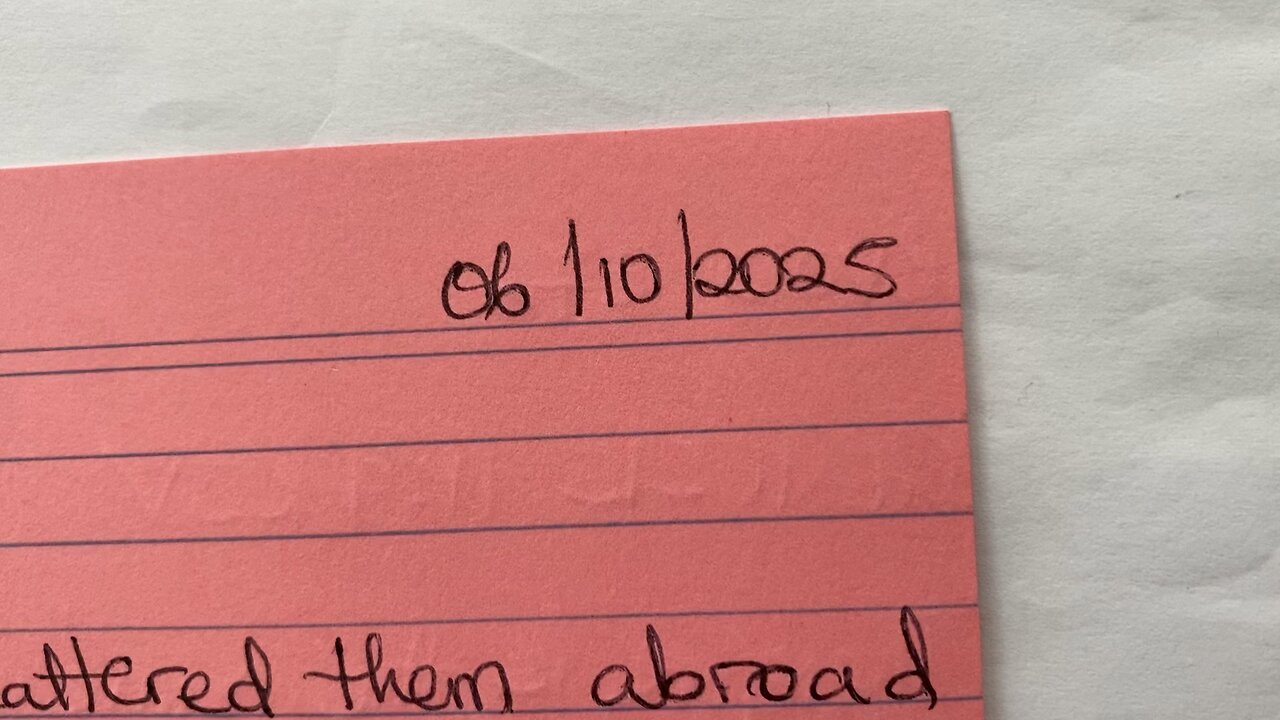 06/10/2025
attered them abroad